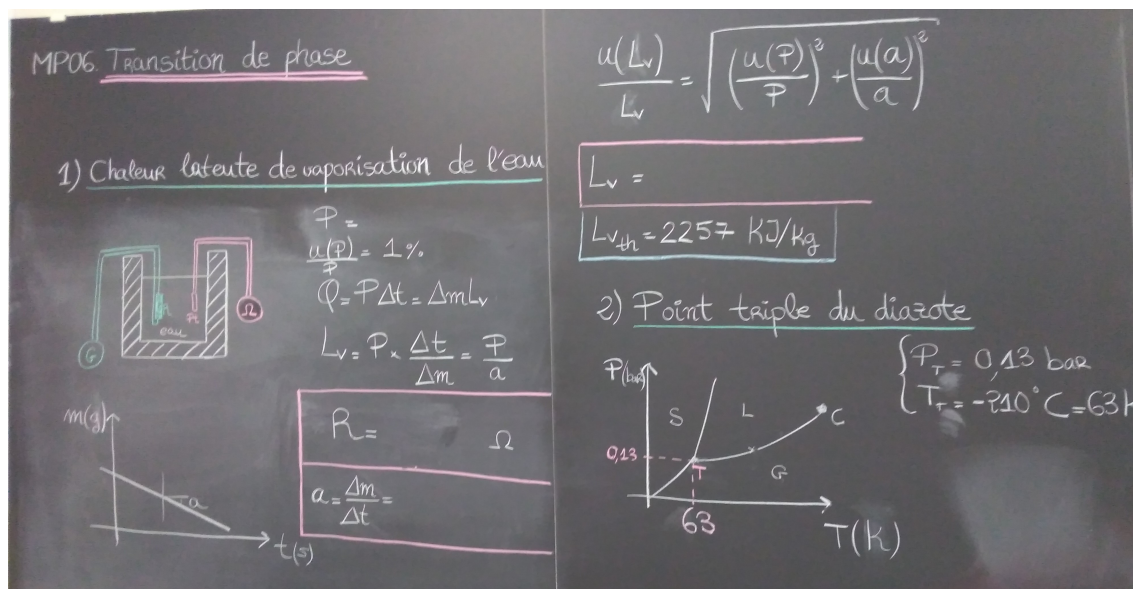 MP06. Transition de phase
1) Chaleur latente de vaporisation de l'eau
G
eau
R
Ω
P =
u(P)/P = 1%
Q = PΔt = Δm Lv
Lv = P × Δt/Δm = P/a
R = Ω
a = Δm/Δt =
m(g)
a
t(s)
u(Lv)/Lv = √((u(P)/P)² + (u(a)/a)²)
Lv =
Lv th = 2257 KJ/kg
2) Point triple du diazote
P(bar)
S
L
C
0,13
T
G
63
T(K)
{ PT = 0,13 bar
TT = -210°C = 63K